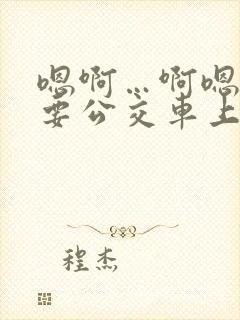 嗯啊…啊嗯
要公交车上
程杰